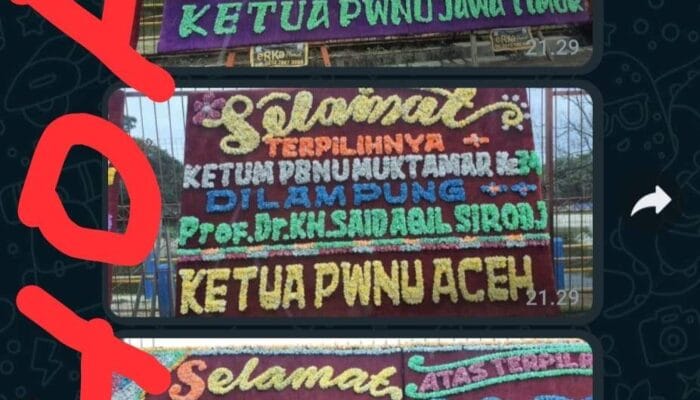 KETUA PWNU JAWA TIMUR
eRKa
21.29
Selamat
TERPILIHNYA
KETUM PBNU MUKTAMAR Ke 34
DILAMPUNG
Prof.Dr.KH.SAID AQIL SIRODJ
KETUA PWNU ACEH
21.29
Selamat
ATAS TERPILA